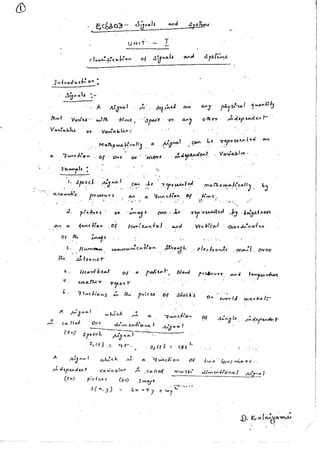 ①
EC6303 - Signals and Systems
UNIT - I
Classification of Signals and Systems
Introduction:
Signals :-
A signal is defined as any physical quantity
that varies with time, space or any other independent
Variables or Variables:
Mathematically a signal can be represented as
a function of one or more independent Variables.
Example :
1. Speech signal can be represented mathematically by
acoustic pressure as a function of time.
2. picture or image can be represented by brightness
as a function of Horizontal and Vertical Co-ordinates
of the image.
3. Human communication through electronic mail over
the internet
4. Heartbeat of a patient, Blood pressure and temperature
5. weather report
6. Fluctions in the prices of stocks on world markets
A signal which is a function of single independent
is called One dimentional signal
(Ex) Speech signal
A signal which is a function of two (or) more
independent variables is called multi dimentional signal
(Ex) picture (or) Image.